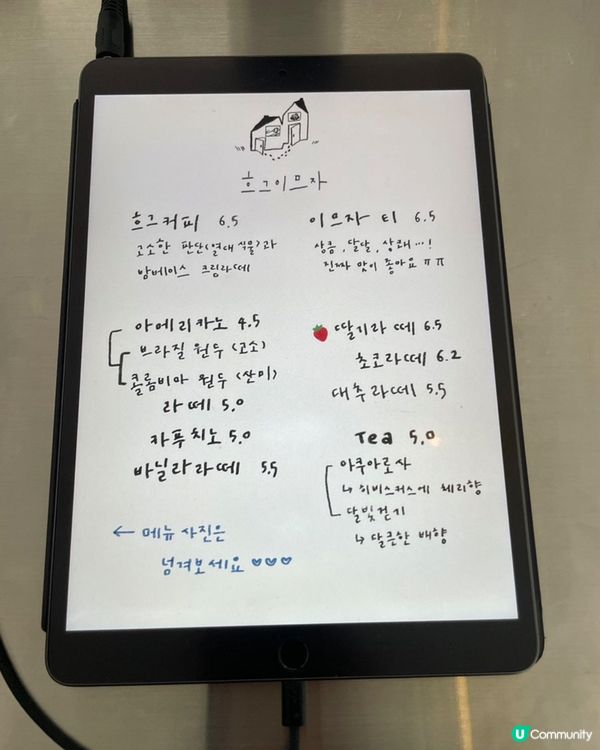 흐그이므자
흐그커피 6.5
고소한 판단(열대 식물)과
밤베이스 크림라떼
이므자 티 6.5
상큼, 달달, 상쾌...!
진짜 맛이 좋아요 ㅠㅠ
아메리카노 4.5
브라질 원두 (고소)
콜롬비아 원두 (산미)
라떼 5.0
카푸치노 5.0
바닐라라떼 5.5
딸기라떼 6.5
초코라떼 6.2
대추라떼 5.5
Tea 5.0
아쿠아로사
↳ 히비스커스에 체리향
달빛걷기
↳ 달큰한 배향
← 메뉴 사진은
넘겨보세요 ♡♡♡
U Community